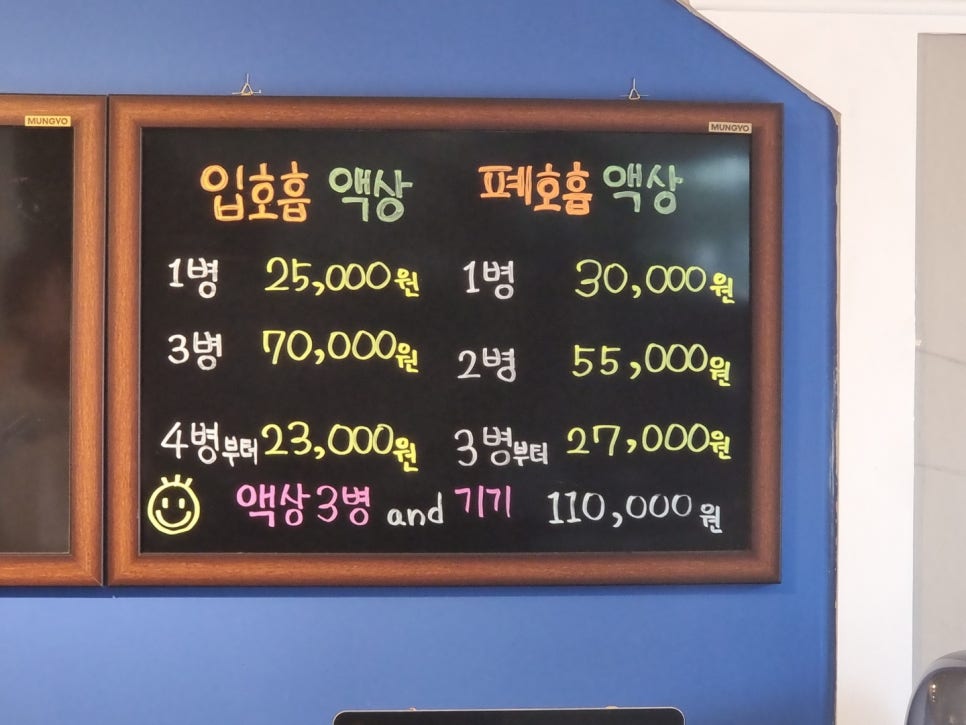 MUNGYO
MUNGYO
입호흡 액상
1병 25,000원
3병 70,000원
4병부터 23,000원
폐호흡 액상
1병 30,000원
2병 55,000원
3병부터 27,000원
액상 3병 and 기기 110,000원